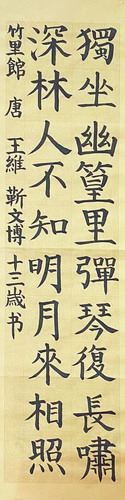 獨坐幽篁里彈琴復長嘯
深林人不知明月來相照
竹里館 唐 王維 靳文博 十二歲书